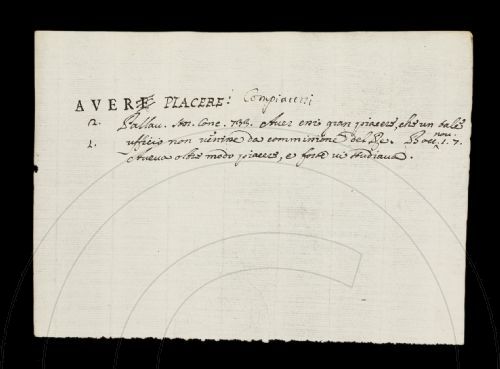 AVERE PIACERE: Compiacersi
2. Pallav. Stor. Conc. 735. Aver essi gran piacere, che un tale
1. ufficio non venisse da commissione del Rè. Bocc. nov. 1. 7.
Aveva oltre modo piacere, e forte vi studiava.